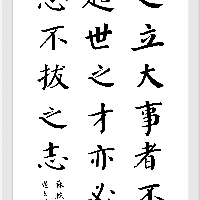 之立大事者不
超世之才亦必
忍不拔之志